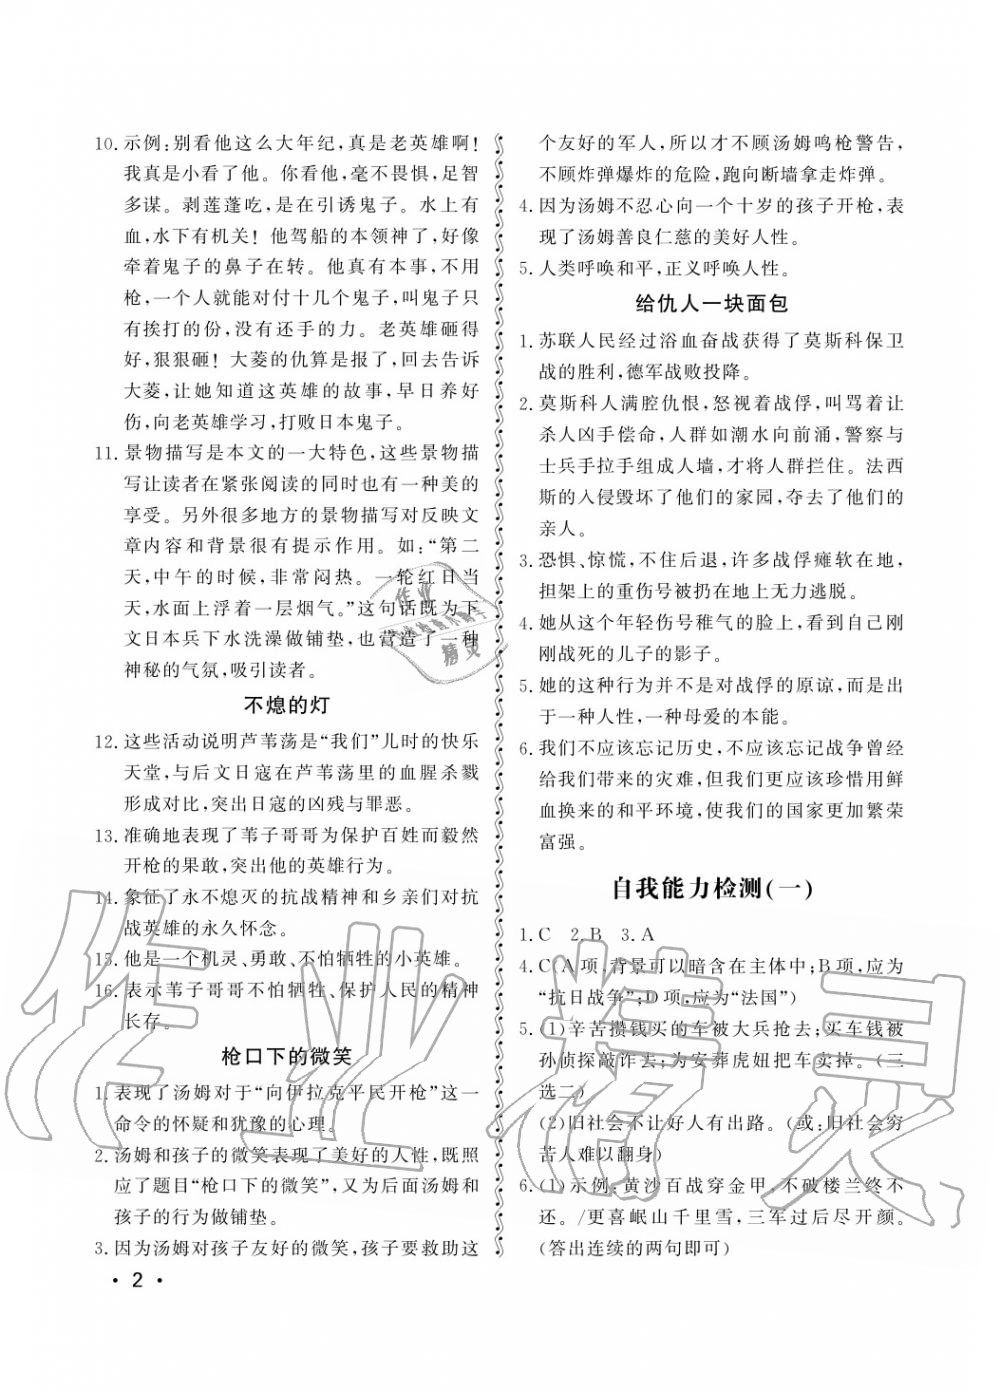 10. 示例:别看他这么大年纪,真是老英雄啊!
我真是小看了他。你看他,毫不畏惧,足智
多谋。剥莲蓬吃,是在引诱鬼子。水上有
血,水下有机关! 他驾船的本领神了,好像
牵着鬼子的鼻子在转。他真有本事,不用
枪,一个人就能对付十几个鬼子,叫鬼子只
有挨打的份,没有还手的力。老英雄砸得
好,狠狠砸! 大菱的仇算是报了,回去告诉
大菱,让她知道这英雄的故事,早日养好
伤,向老英雄学习,打败日本鬼子。
11. 景物描写是本文的一大特色,这些景物描
写让读者在紧张阅读的同时也有一种美的
享受。另外很多地方的景物描写对反映文
章内容和背景很有提示作用。如:“第二
天,中午的时候,非常闷热。一轮红日当
天,水面上浮着一层烟气。”这句话既为下
文日本兵下水洗澡做铺垫,也营造了一种
神秘的气氛,吸引读者。
不熄的灯
12. 这些活动说明芦苇荡是“我们”儿时的快乐
天堂,与后文日寇在芦苇荡里的血腥杀戮
形成对比,突出日寇的凶残与罪恶。
13. 准确地表现了苇子哥哥为保护百姓而毅然
开枪的果敢,突出他的英雄行为。
14. 象征了永不熄灭的抗战精神和乡亲们对抗
战英雄的永久怀念。
15. 他是一个机灵、勇敢、不怕牺牲的小英雄。
16. 表示苇子哥哥不怕牺牲、保护人民的精神
长存。
枪口下的微笑
1. 表现了汤姆对于“向伊拉克平民开枪”这一
命令的怀疑和犹豫的心理。
2. 汤姆和孩子的微笑表现了美好的人性,既照
应了题目“枪口下的微笑”,又为后面汤姆和
孩子的行为做铺垫。
3. 因为汤姆对孩子友好的微笑,孩子要救助这
· 2 ·
个友好的军人,所以才不顾汤姆鸣枪警告,
不顾炸弹爆炸的危险,跑向断墙拿走炸弹。
4. 因为汤姆不忍心向一个十岁的孩子开枪,表
现了汤姆善良仁慈的美好人性。
5. 人类呼唤和平,正义呼唤人性。
给仇人一块面包
1. 苏联人民经过浴血奋战获得了莫斯科保卫
战的胜利,德军战败投降。
2. 莫斯科人满腔仇恨,怒视着战俘,叫骂着让
杀人凶手偿命,人群如潮水向前涌,警察与
士兵手拉手组成人墙,才将人群拦住。法西
斯的入侵毁坏了他们的家园,夺去了他们的
亲人。
3. 恐惧、惊慌,不住后退,许多战俘瘫软在地,
担架上的重伤号被扔在地上无力逃脱。
4. 她从这个年轻伤号稚气的脸上,看到自己刚
刚战死的儿子的影子。
5. 她的这种行为并不是对战俘的原谅,而是出
于一种人性,一种母爱的本能。
6. 我们不应该忘记历史,不应该忘记战争曾经
给我们带来的灾难,但我们更应该珍惜用鲜
血换来的和平环境,使我们的国家更加繁荣
富强。
自我能力检测(一)
1. C  2. B  3. A
4. C(A项,背景可以暗含在主体中;B项,应为
“抗日战争”;D项,应为“法国”)
5. (1)辛苦攒钱买的车被大兵抢去;买车钱被
孙侦探敲诈去;为安葬虎妞把车卖掉。(三
选二)
(2)旧社会不让好人有出路。(或:旧社会穷
苦人难以翻身)
6. (1)示例:黄沙百战穿金甲,不破楼兰终不
还。/更喜岷山千里雪,三军过后尽开颜。
(答出连续的两句即可)
作业精灵